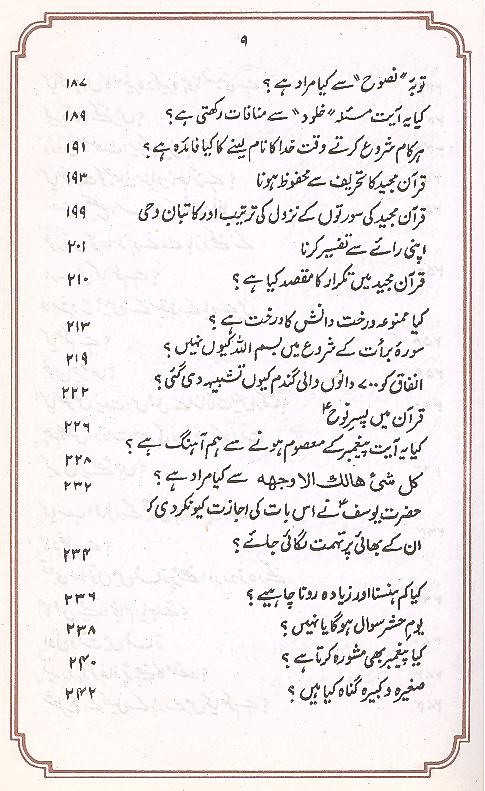 ۹
توبۂ "نصوح" سے کیا مراد ہے؟ ۱۸۷
کیا یہ آیت مسئلہ "خلود" سے منافات رکھتی ہے؟ ۱۸۹
ہر کام شروع کرتے وقت خدا کا نام لینے کا کیا فائدہ ہے؟ ۱۹۱
قرآن مجید کا تحریف سے محفوظ ہونا ۱۹۳
قرآن مجید کی سورتوں کے نزول کی ترتیب اور کاتبان وحی ۱۹۹
اپنی رائے سے تفسیر کرنا ۲۰۱
قرآن مجید میں تکرار کا مقصد کیا ہے؟ ۲۱۰
کیا ممنوعہ درخت دانش کا درخت ہے؟ ۲۱۳
سورۂ برأت کے شروع میں بسم اللہ کیوں نہیں؟ ۲۱۹
انفاق کو ۷۰۰ دانوں والی گندم کیوں تشبیہ دی گئی؟ ۲۲۲
قرآن میں پسرِ نوحؑ ۲۲۶
کیا یہ آیت پیغمبر کے معصوم ہونے سے ہم آہنگ ہے؟ ۲۲۸
کل شئ ھالك الا وجھه سے کیا مراد ہے؟ ۲۳۲
حضرت یوسفؑ نے اس بات کی اجازت کیونکر دی کہ
ان کے بھائی پر تہمت لگائی جائے؟ ۲۳۴
کیا کم ہنسنا اور زیادہ رونا چاہیے؟ ۲۳۶
یوم حشر سوال ہوگا یا نہیں؟ ۲۳۸
کیا پیغمبر بھی مشورہ کرتا ہے؟ ۲۴۰
صغیرہ و کبیرہ گناہ کیا ہیں؟ ۲۴۲